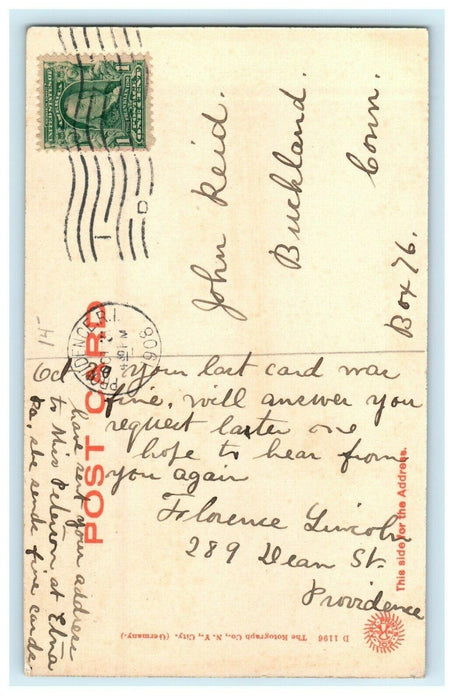 POST CARD
This side for the Address.
PROVIDENCE, R.I.
John Reid.
Buckland.
Conn.
Box 76.
14-
Your last card was
fine, will answer you
request laster one
hope to hear from
you again
Florence Lincoln
289 Dean St.
Providence
have sent your address
to Miss Peterson at Etna
she sends fine cards
D 1196 The Rotograph Co., N. Y. City. (Germany.)